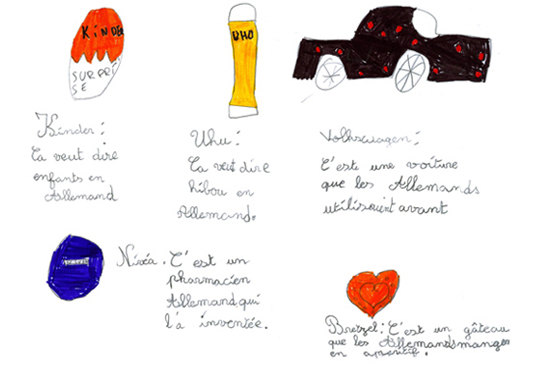 KiNDER
SURPRI
SE
UHU
Kinder :
Ça veut dire
enfants en
Allemand
Uhu :
Ça veut dire
hibou en
Allemand.
Volkswagen :
C'este une voiture
que les Allemands
utilisaient avant
Nivéa. C'est un
pharmacien
Allemand qui
l'à inventée.
Bretzel : C'est un gâteau
que les Allemands mangent
en apéritif.